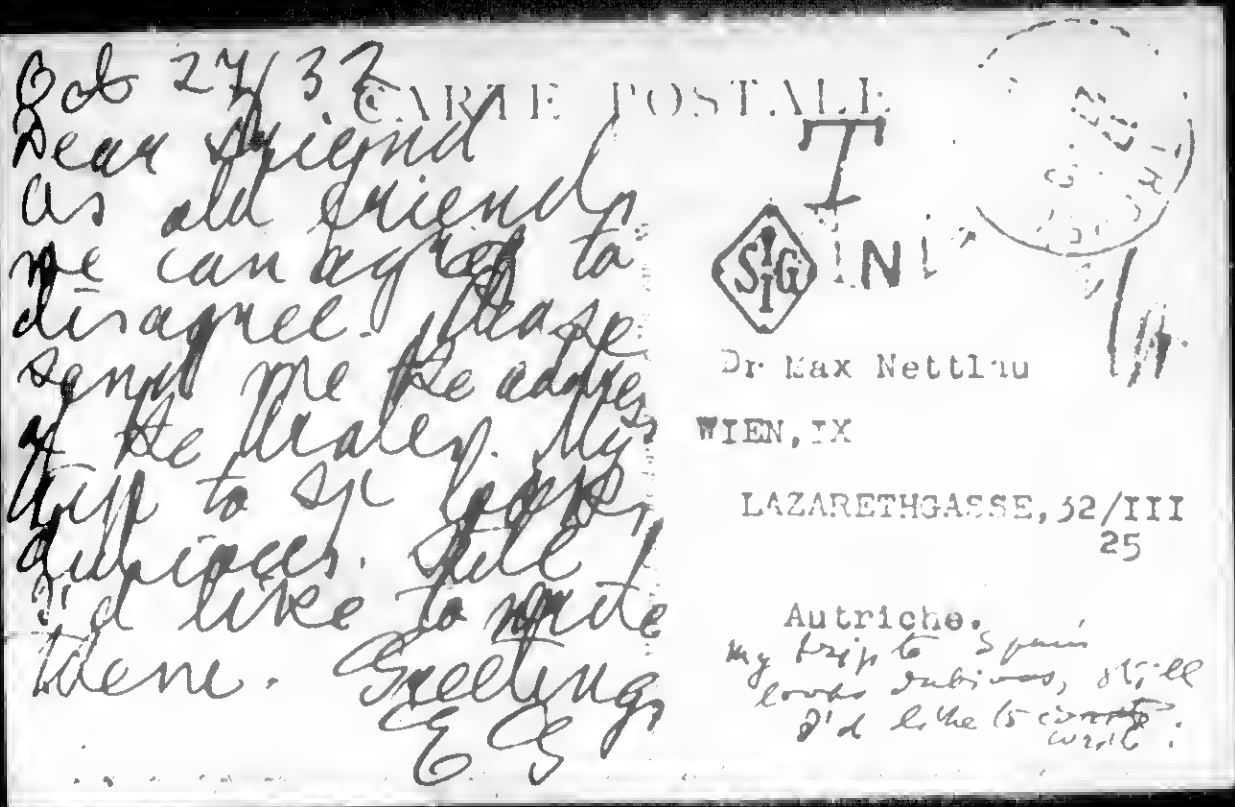 Oct 27/32
CARTE POSTALE
Dear Friend
As old friends
we can agree to
disagree. Please
send me the address
of the Urales. My
trip to Sp looks
dubious. Still
I'd like to write
them. Greetings
E G
T
SIG
Dr Max Nettlau
WIEN, IX
LAZARETHGASSE, 32/III
25
Autriche.
My trip to Spain
looks dubious, still
I'd like to
write.